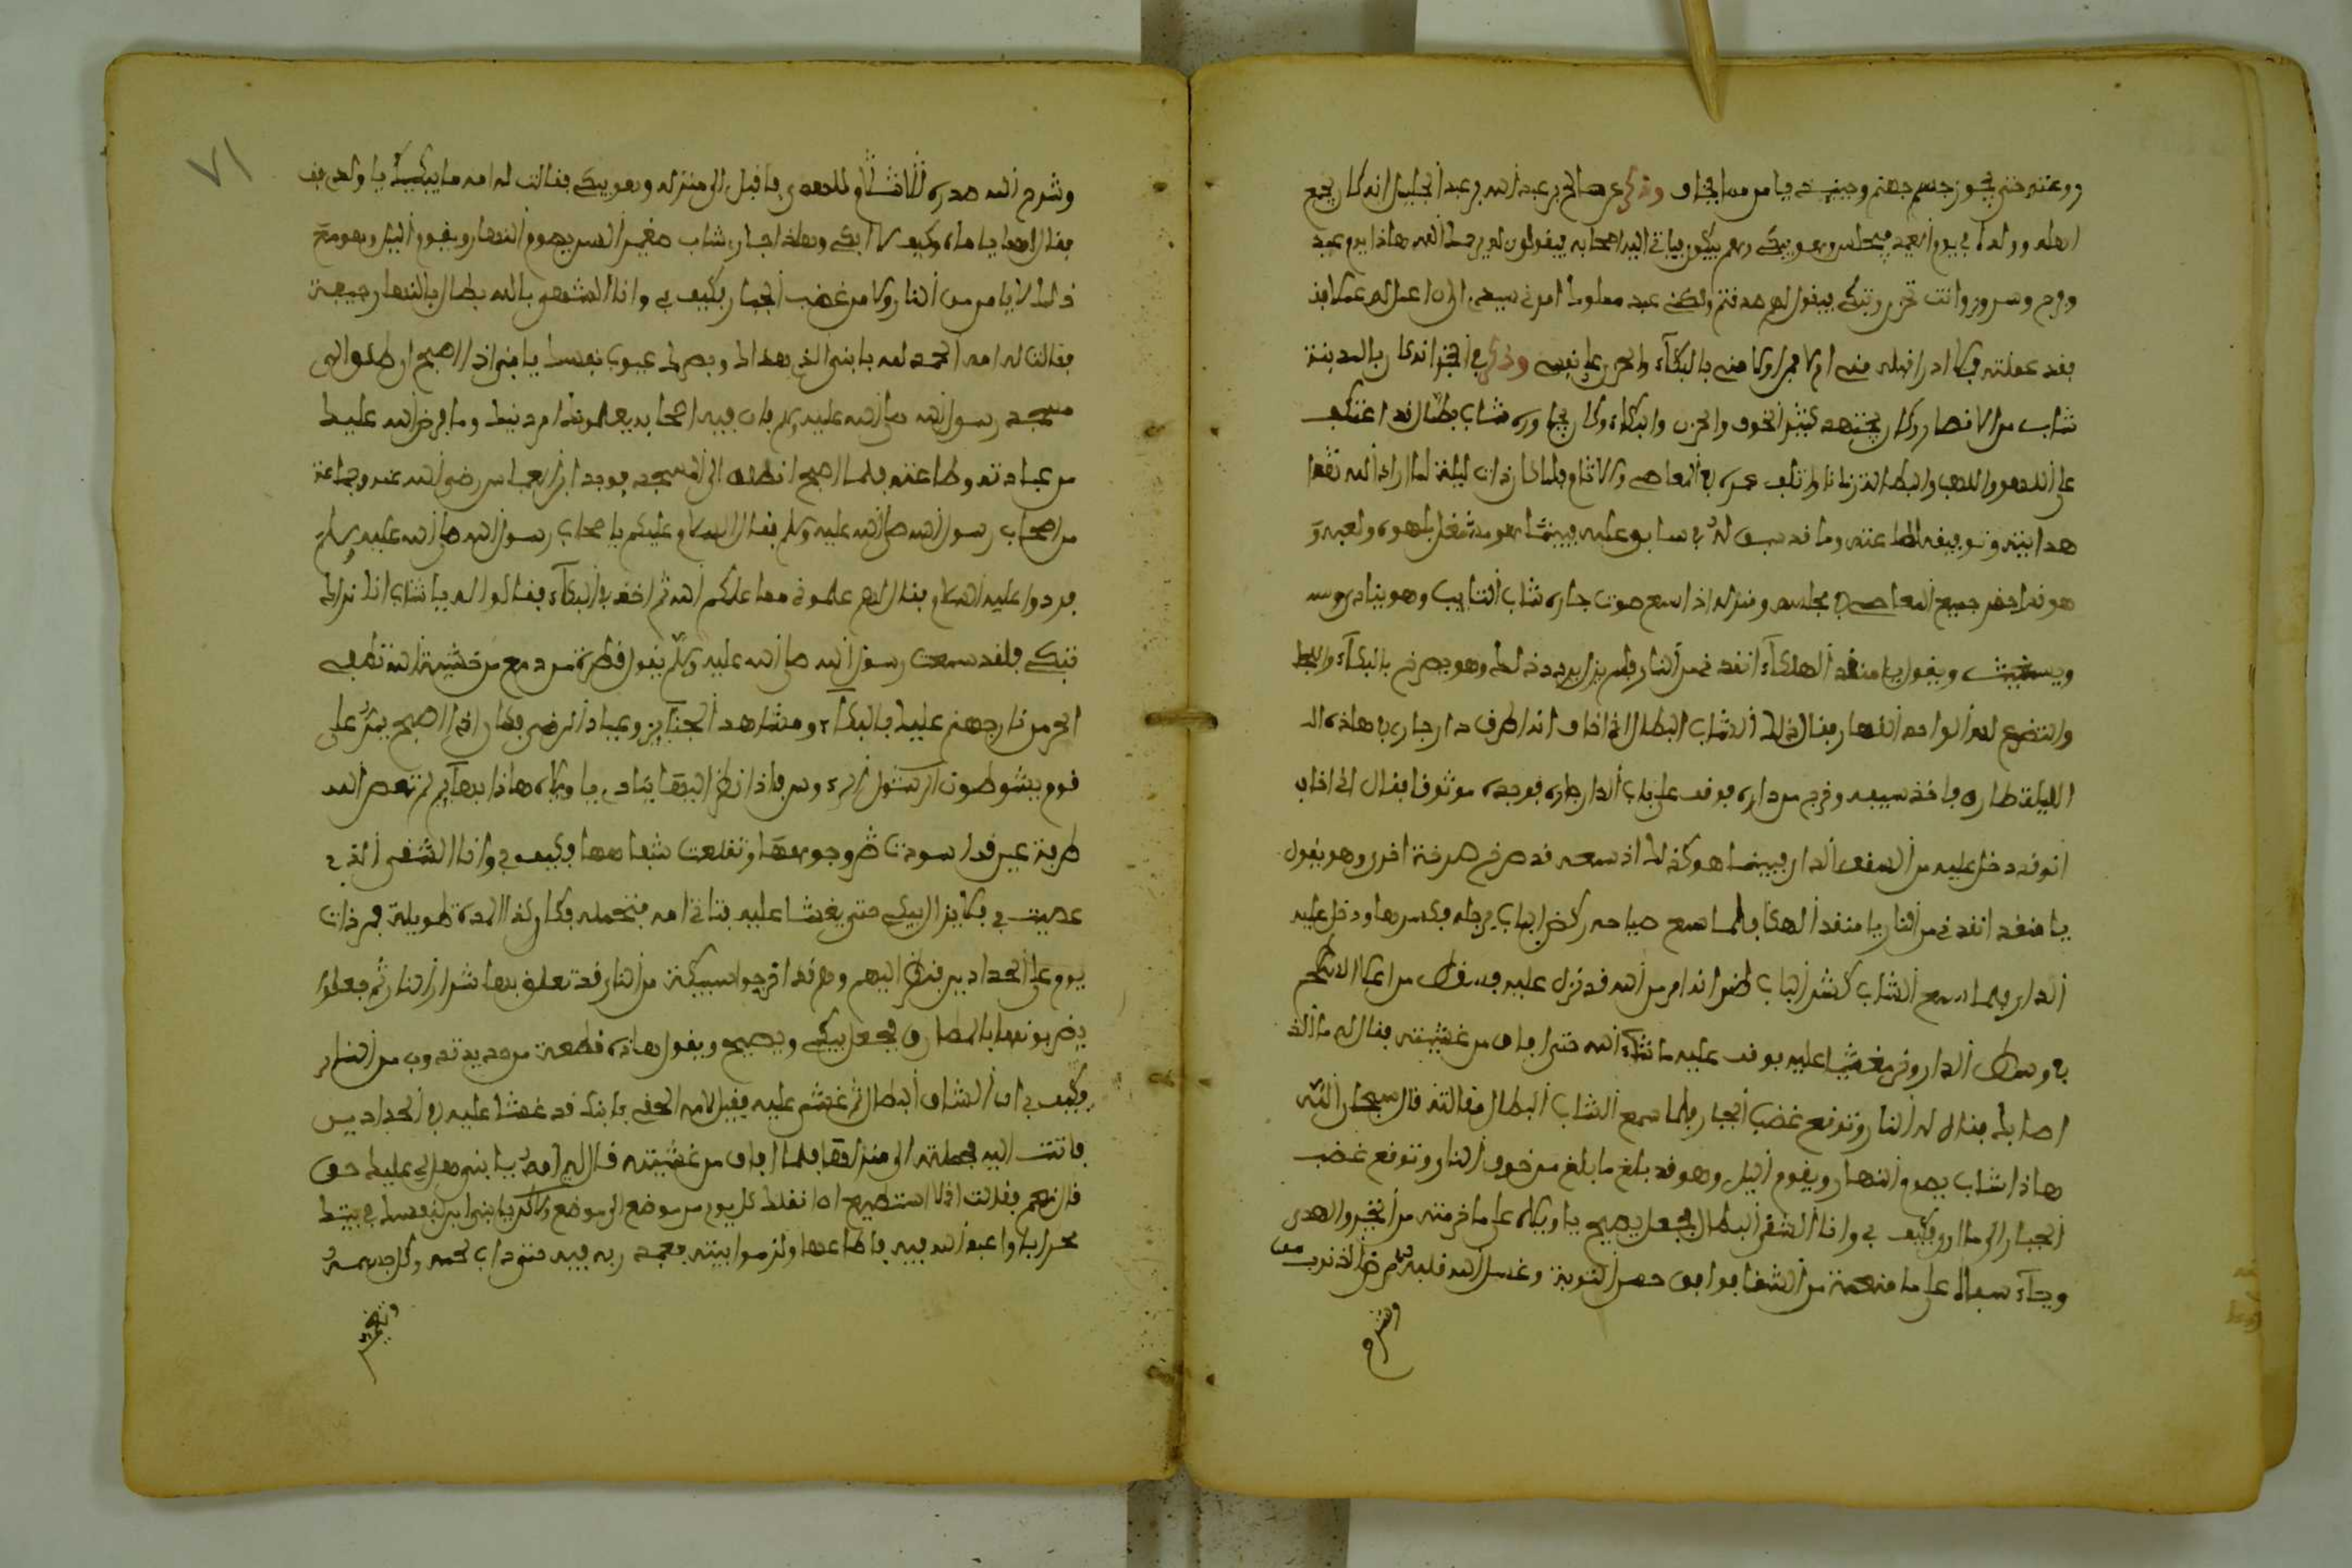 روعته حتى يجوز جسم جهنم وحينئذ يامر من ايخاف وذكر عن صالح بن عبد الله بن عبد الجليل انه كان يجمع
اهله وولده في يوم العيد ويجلس وهو يبكي وهم يبكون فياتي اليه اصحابه فيقولون له يرحمك الله هاذا يوم عيد
وفرح وسرور وانت تحزن وتبكي فيقول لهم صدقتم ولكني عبد مملوك امرني سيدي ان اعمل له عملا
فقد عملته فلا ادري اقبله مني ام لا فمن اولا مني بالبكاء والحزن على نفسي وذكر في الخبر انه كان بالمدينة
شاب من الانصار وكان يجتهد كثير الخوف والحزن والبكاء وكان يجاوره شاب بطال قد اعتكف
على اللهو واللعب والبطالة زمانا واتلف عمره في المعاصي والاثام فلما كان ذات ليلة لما اراد الله تعالى
هدايته وتوفيقه لطاعته وما قد سبق له في سابق علمه فبينما هو مشتغل بلهوه ولعبه و
هو قد احضر جميع المعاصي في مجلسه ومنزله اذا سمع صوت جاره شاب التايب وهو ينادي
ويستغيث ويقول يا منقذ الهلكاء انقذني من النار فلم يزل يردد ذلك وهو يصرخ بالبكاء
والتضرع لله الواحد القهار فقال ذلك الشاب البطال اني اخاف انه اطرق دار جاري في هاذه
الليلة طارق فاخذ سيفه وخرج من داره فوقف على باب الدار جاره فوجده موثوقا فقال اني اخاف
انه قد دخل عليه من السقف الدار فبينما هو كذلك اذ سمعه قد صرخ صرخة اخرى وهو يقول
يا منقذ انقذني من النار يا منقذ الهلكا فلما سمع صياحه ركض الباب برجله فكسرها ودخل عليه
الدار فلما سمع الشاب كسر الباب ظن انه امر من الله قد نزل عليه فسقط من اعلا
في وسط الدار وخر مغشيا عليه فوقف عليه ما شاء الله حتى افاق من غشيته فقال له ما الذي
اصابك فقال له النار وتوقع غضب الجبار فلما سمع الشاب البطال مقالته قال سبحان الله
هاذا شاب يصوم النهار ويقوم الليل وهو قد بلغ ما بلغ من خوف النار وتوقع غضب
الجبار فكيف بي وانا الشقي البطال فجعل يصيح يا ويلاه على ما حرمته من الخير والهدى
وجاء على ما منعه من الشقا فوافق حسن التوبة وغسل الله قلبه من الذنوب
وشرح
وشرح الله صدره فاقبل الى منزله وهو يبكي فقالت له امه ما يبكيك يا ولدي
فقال لها يا اماه وكيف لا ابكي وهاذا جاري شاب صغير السن يصوم النهار ويقوم الليل وهو مع
ذلك لا يامر من النار ولا من غضب الجبار فكيف بي وانا الشقي بالله بطال بالنهار وجيفة
فقالت له امه الحمد لله يا بني الذي هداك وبصرك عيوب نفسك يا بني اذا اصبح انطلق الى
مسجد رسول الله صلى الله عليه وسلم فان فيه اصحابه يعلموك امر دينك وما فرض الله عليك
من عبادته وطاعته فلما اصبح انطلق الى المسجد فوجد ابن العباس رضي الله عنه وجماعة
من اصحاب رسول الله صلى الله عليه وسلم فقال السلام عليكم يا اصحاب رسول الله صلى الله عليه وسلم
فردوا عليه السلام فقال لهم علموني مما علمكم الله ثم اخذ في البكاء فقالوا له يا شاب انا نراك
تبكي فلقد سمعت رسول الله صلى الله عليه وسلم يقول قطرة من دمع من خشية الله تطفي
البحر من نار جهنم عليك بالبكاء ومشاهد الجنايز وعيادة المرضى فكان اذا اصبح يمر على
قوم يشوطون فاذا نظر اليها ينادي يا ويلاه هاذا بهايم لم تعص الله
طرفة عين قد اسودت وجوهها وتقلعت شفاهها فكيف بي وانا الشقي الذي
عصيت فلا يزال يبكي حتى يغشا عليه فتاتي امه فتحمله فكان كذا لمدة طويلة فمر ذات
يوم على الحدادين فنظر اليهم وهم قد اخرجوا سبيكة من النار قد تعلق بها شرار النار ثم جعلوا
يضربونها بالمطارق فجعل يبكي ويصيح ويقول هاذه قطعة من حديد تذوب من النار
فكيف بي الشاب البطال ثم غشي عليه فقيل لامه الحقي بابنك قد غشا عليه في الحدادين
فاتت اليه فحملته الى منزلها فلما افاق من غشيته قال له امه يا بني هل لي عليك حق
قال نعم فقالت اني لا استطيع انا انقلك كل يوم من موضع الى موضع ولاكن يا بني ابن لنفسك في بيتك
محرابا واعبد الله فيه فاطاعها ولزم بيته يعبد ربه فيه حتى ذاب لحمه وكل جسمه
وتغير
٧١